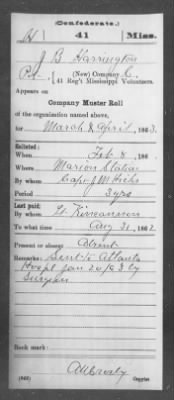 (Confederate.)
H 41 Miss.
J B Harrington
Pvt., (New) Company C,
41 Reg't Mississippi Volunteers.
Appears on
Company Muster Roll
of the organization named above,
for March & April, 1863.
Enlisted:
When Feb 8, 186
Where Marion Station
By whom Capt J M Hicks
Period 3 yrs
Last paid:
By whom
To what time Aug 31, 1862.
Present or absent Absent
Remarks: Sent to Atlanta
Hospl Jan 20/63 by
Surgeon
Book mark:
(642) Copyist.